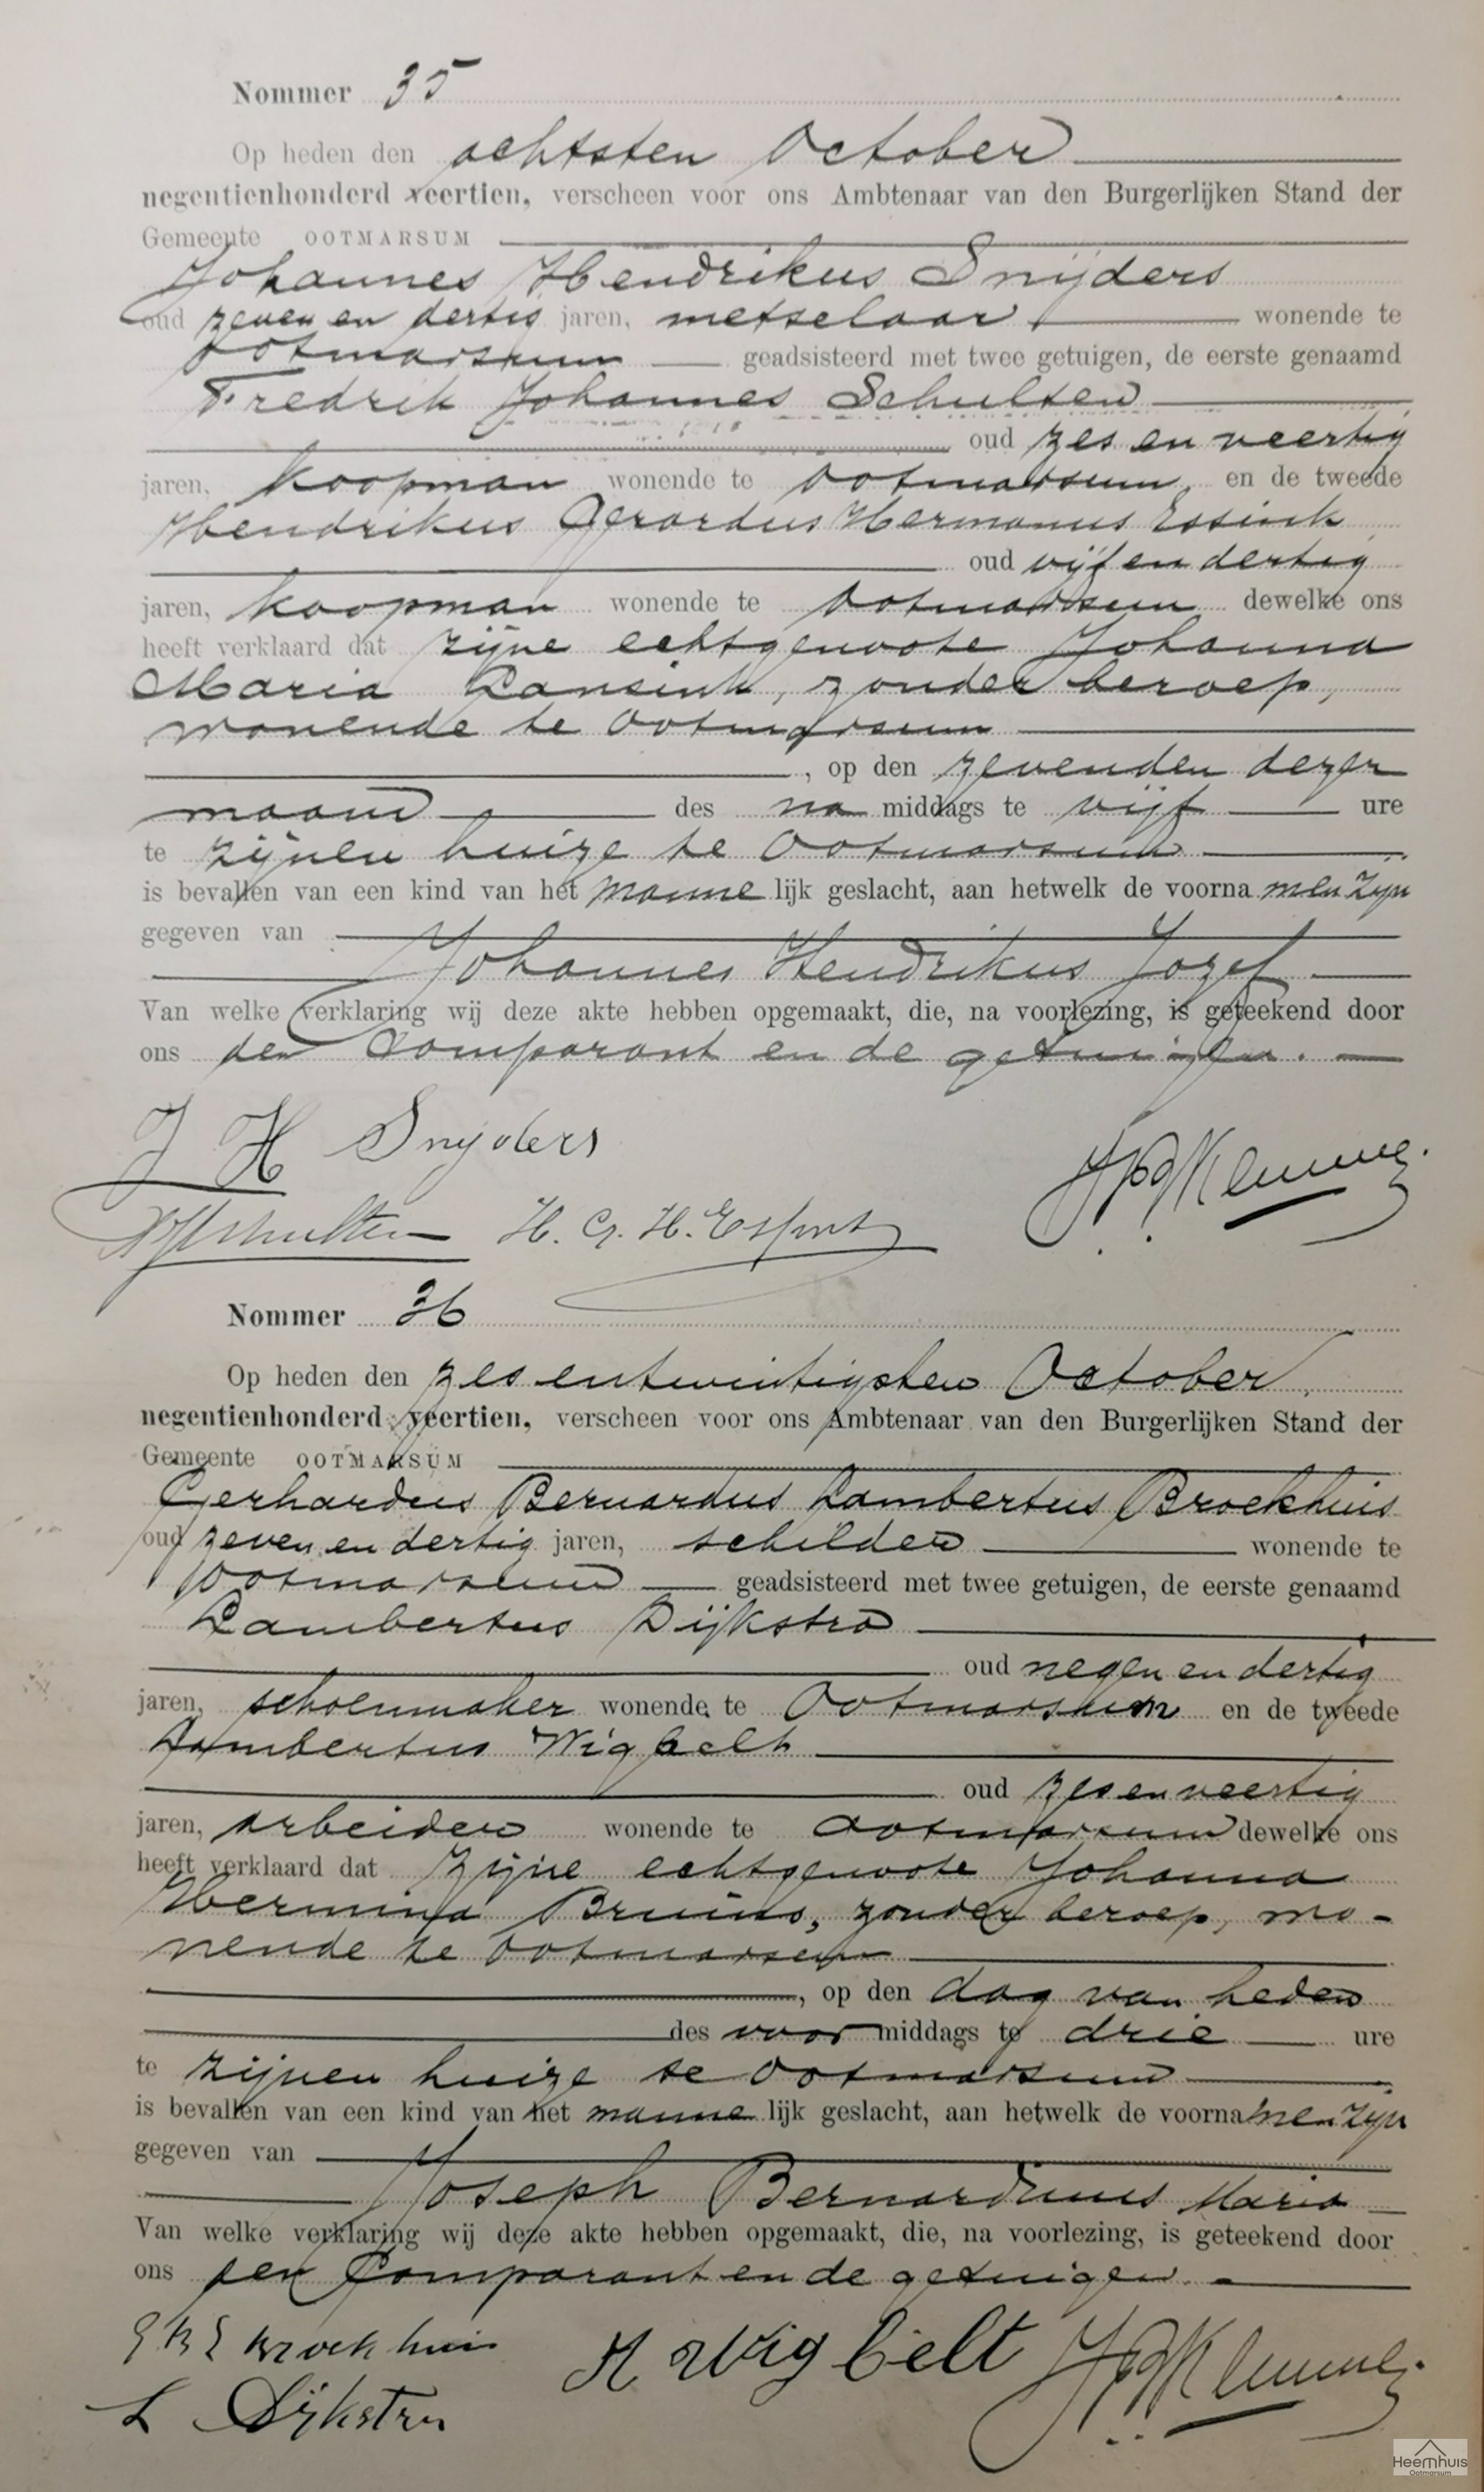 Nommer 35
Op heden den achtsten October
negentienhonderd veertien, verscheen voor ons Ambtenaar van den Burgerlijken Stand der
Gemeente OOTMARSUM
Johannes Hendrikus Snijders
oud zeven en dertig jaren, metselaar wonende te
Ootmarsum geadsisteerd met twee getuigen, de eerste genaamd
Fredrik Johannes Schulten
oud zes en veertig
jaren, koopman wonende te Ootmarsum, en de tweede
Hendrikus Gerardus Hermanus Essink
oud vijf en dertig
jaren, koopman wonende te Ootmarsum dewelke ons
heeft verklaard dat zijne echtgenoote Johanna
Maria Lansink, zonder beroep,
wonende te Ootmarsum
, op den zevenden dezer
maand des na middags te vijf ure
te zijnen huize te Ootmarsum
is bevallen van een kind van het manne lijk geslacht, aan hetwelk de voorna men zijn
gegeven van
Johannes Hendrikus Jozef
Van welke verklaring wij deze akte hebben opgemaakt, die, na voorlezing, is geteekend door
ons den Comparant en de getuigen.
J H Snyders
Schulten H. G. H. Essink
Nommer 36
Op heden den zes entwintigsten October,
negentienhonderd veertien, verscheen voor ons Ambtenaar van den Burgerlijken Stand der
Gemeente OOTMARSUM
Gerhardus Bernardus Lambertus Brockhuis
oud zeven en dertig jaren, schilder wonende te
Ootmarsum geadsisteerd met twee getuigen, de eerste genaamd
Lambertus Dijkstra
oud negen en dertig
jaren, schoenmaker wonende te Ootmarsum en de tweede
Lambertus Wigbelt
oud zes en veertig
jaren, arbeider wonende te Ootmarsum dewelke ons
heeft verklaard dat zijne echtgenoote Johanna
Hermina Bruins, zonder beroep, wo-
nende te Ootmarsum
, op den dag van heden
des voor middags te drie ure
te zijnen huize te Ootmarsum
is bevallen van een kind van het manne lijk geslacht, aan hetwelk de voorna men zijn
gegeven van
Joseph Bernardinus Maria
Van welke verklaring wij deze akte hebben opgemaakt, die, na voorlezing, is geteekend door
ons den Comparant en de getuigen.
G B L Brockhuis Wigbelt
L Dijkstra
Heemhuis
Ootmarsum